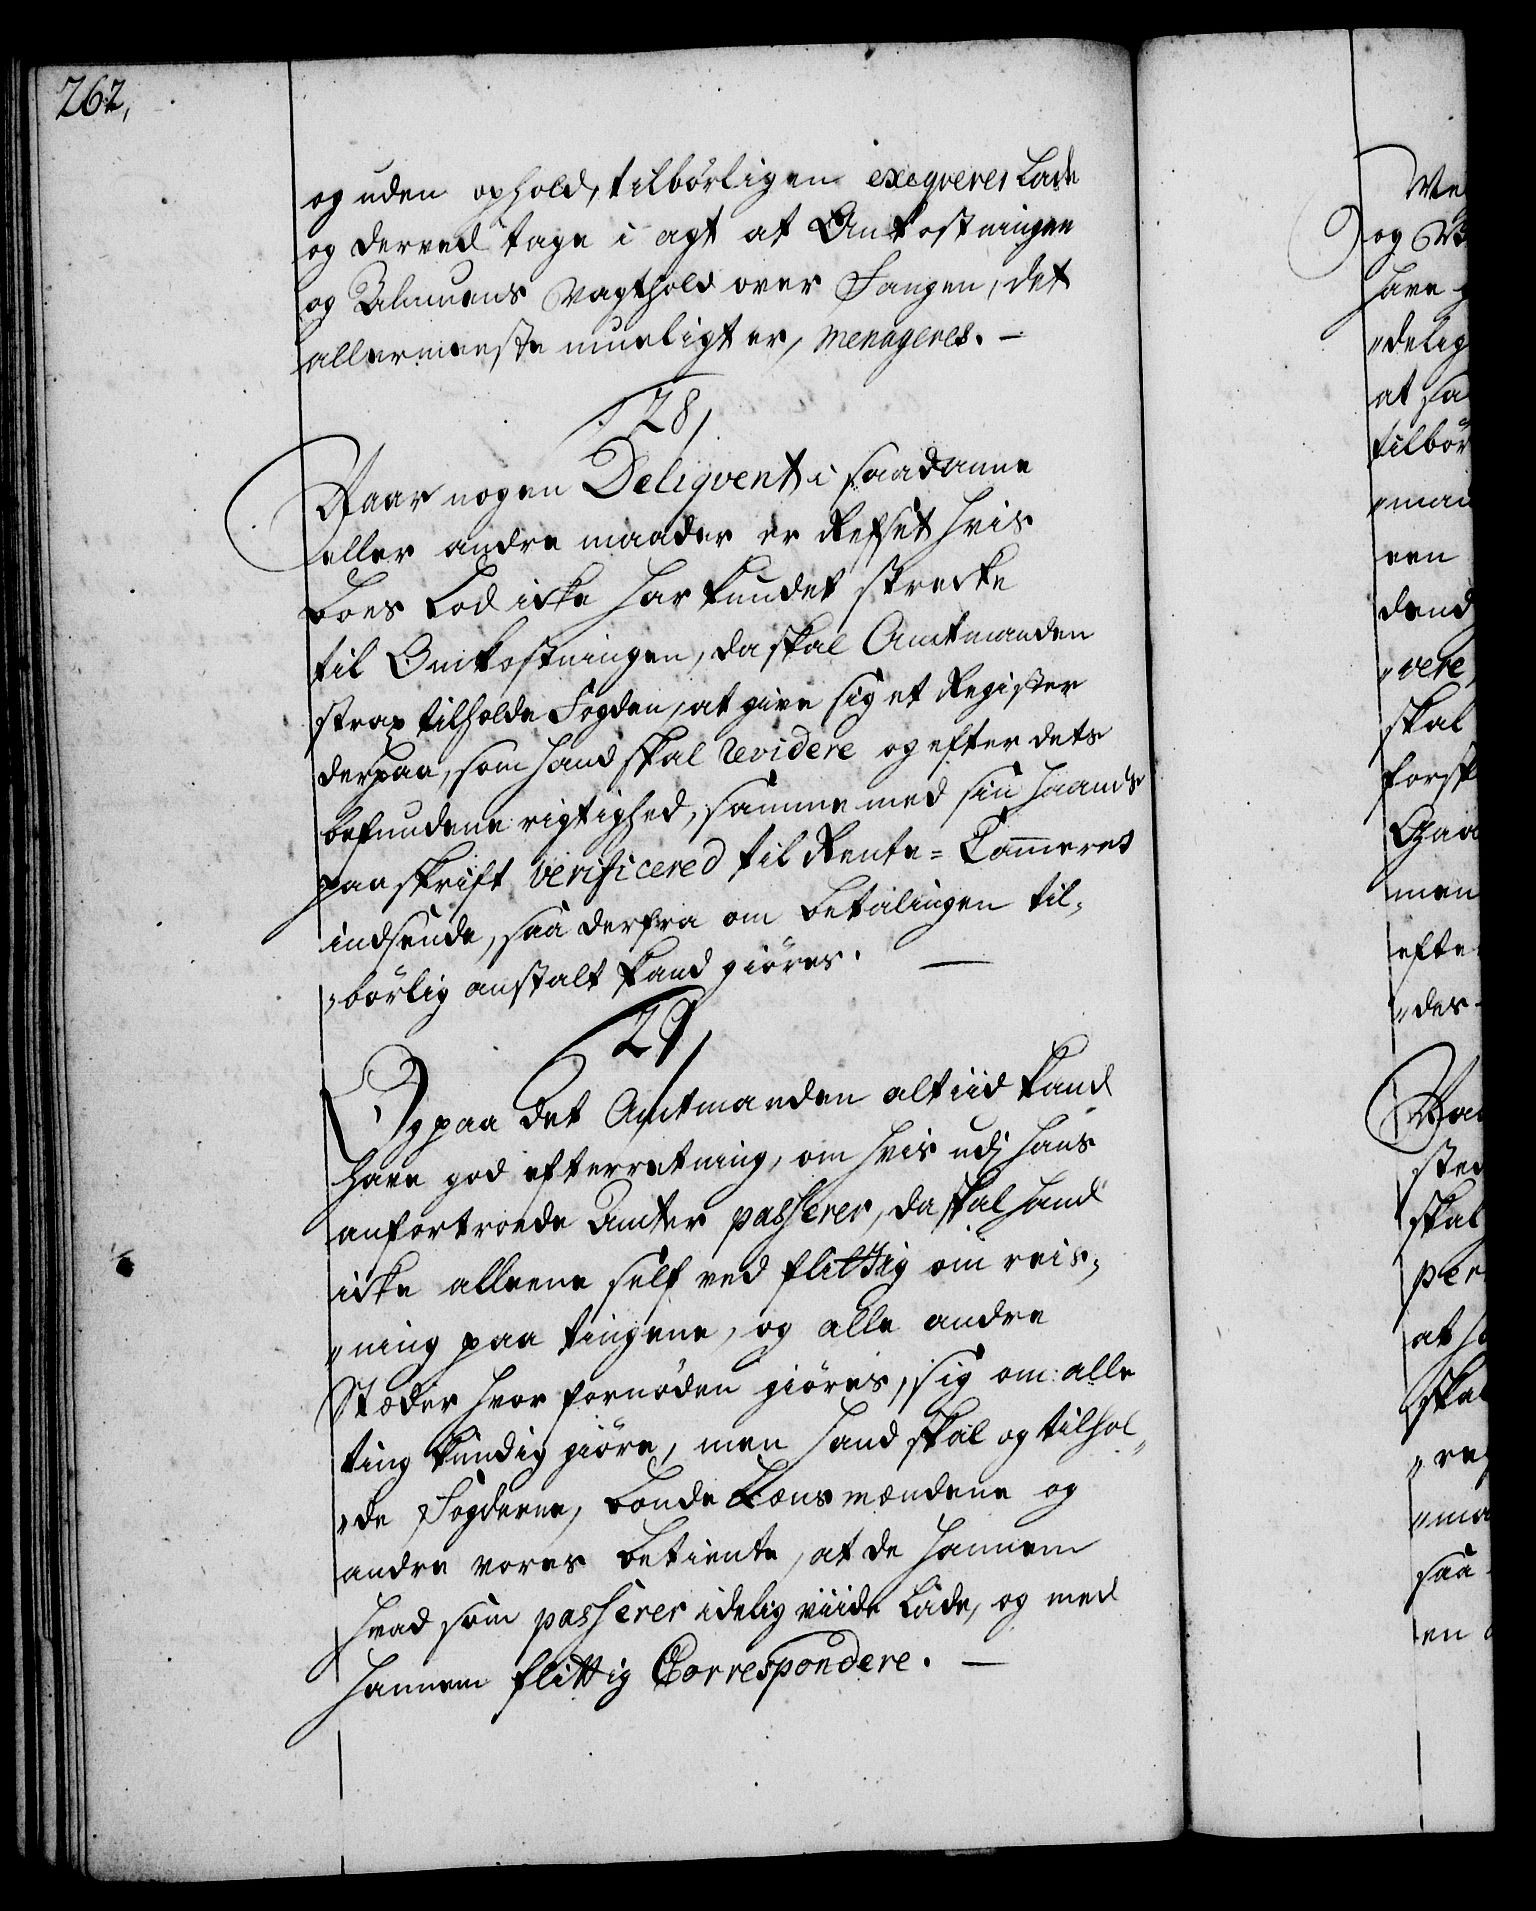 262,
og uden ophold, tilbörligen exeqveres Lade
og derved tage i agt at Omkostningen
og Almuens vagthold over Fangen, det
allermeeste mueligt er, menageres. –
28,
Naar nogen Deliqvent i saadanne
eller andre maader er Refset hvis
boes Lod icke har kundet strecke
til Omkostningen, da skal Amtmanden
strax tilholde Fogden, at give sig et Register
derpaa, som hand skal revidere og efter dets
befundene rigtighed, samme med sin haands
paaskrift verificered til Rente-Cammeret
indsende, saa derfra om betalingen til,
„börlig anstalt kand giöres. —
29,
Og paa det Amtmanden altiid kand
have god efterretning, om hvis udj hans
anfortroede Amter passerer, da skal hand
icke alleene self ved flittig om reis,
„ning paa tingene, og alle andre
Stæder hvor fornöden giöres, sig om alle
ting kundig giöre, men hand skal og tilhol„
„de Fogderne, bonde Lænsmændene og
andre vores betiente, at de hannem
hvad som passerer idelig viide Lade, og med
hannem flittig Correspondere. —
og
have
„delig
at
tilbör
„man
een
dend
„vere
skal
forsk
men
efte
„des
skal
per
at
skal
saa
en